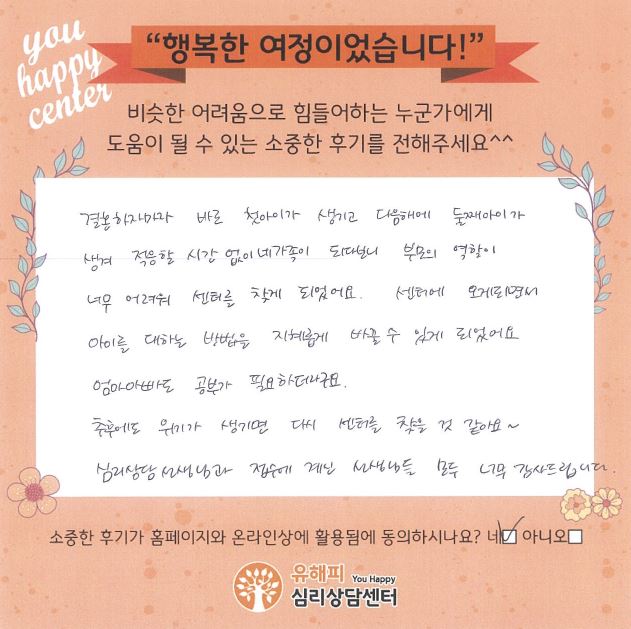 you
happy
center
“행복한 여정이었습니다!”
비슷한 어려움으로 힘들어하는 누군가에게
도움이 될 수 있는 소중한 후기를 전해주세요^^
결혼하자마자 바로 첫아이가 생기고 다음해에 둘째아이가
생겨 적응할 시간 없이 네가족이 되다보니 부모의 역할이
너무 어려워 센터를 찾게 되었어요. 센터에 오게되면서
아이를 대하는 방법을 지혜롭게 바꿀 수 있게 되었어요
엄마아빠도 공부가 필요하더라구요.
추후에도 위기가 생기면 다시 센터를 찾을 것 같아요~
심리상담 선생님과 접수에 계신 선생님들 모두 너무 감사드립니다.
소중한 후기가 홈페이지와 온라인상에 활용됨에 동의하시나요? 네 아니오
유해피 You Happy
심리상담센터